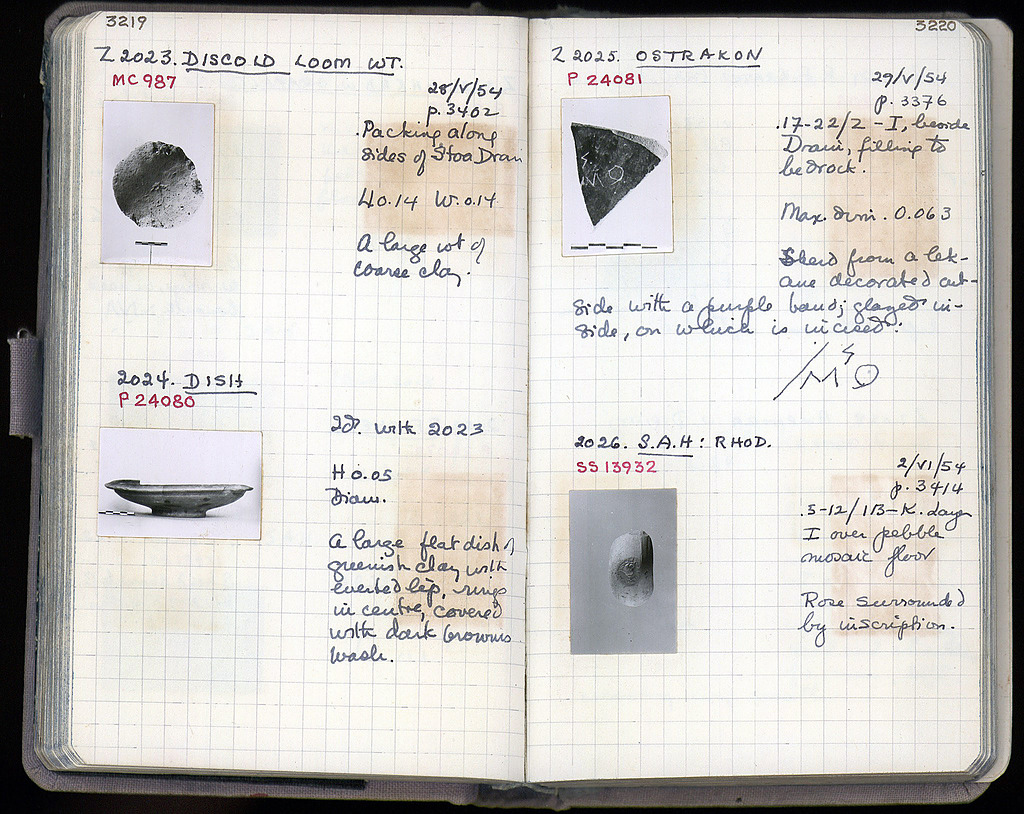 3219
Z 2023. DISCOID LOOM WT.
MC 987
28/V/54
p. 3402
Packing along
sides of Stoa Drain
H 0.14 W. 0.14
A large wt of
coarse clay.
2024. DISH
P 24080
with 2023
H 0.05
Diam.
A large flat dish of
greenish clay with
everted lip, rings
in centre, covered
with dark brownish
wash.
3220
Z 2025. OSTRAKON
P 24081
29/V/54
p. 3376
.17-22/Z - I, beside
Drain, filling to
bedrock.
Max. dim. 0.063
Sherd from a lek-
ane decorated out-
side with a purple band; glazed in-
side, on which is incised:
2026. S.A.H: RHOD.
SS 13932
2/VI/54
p. 3414
.5-12/ K. layer
I over pebble
mosaic floor
Rose surrounded
by inscription.